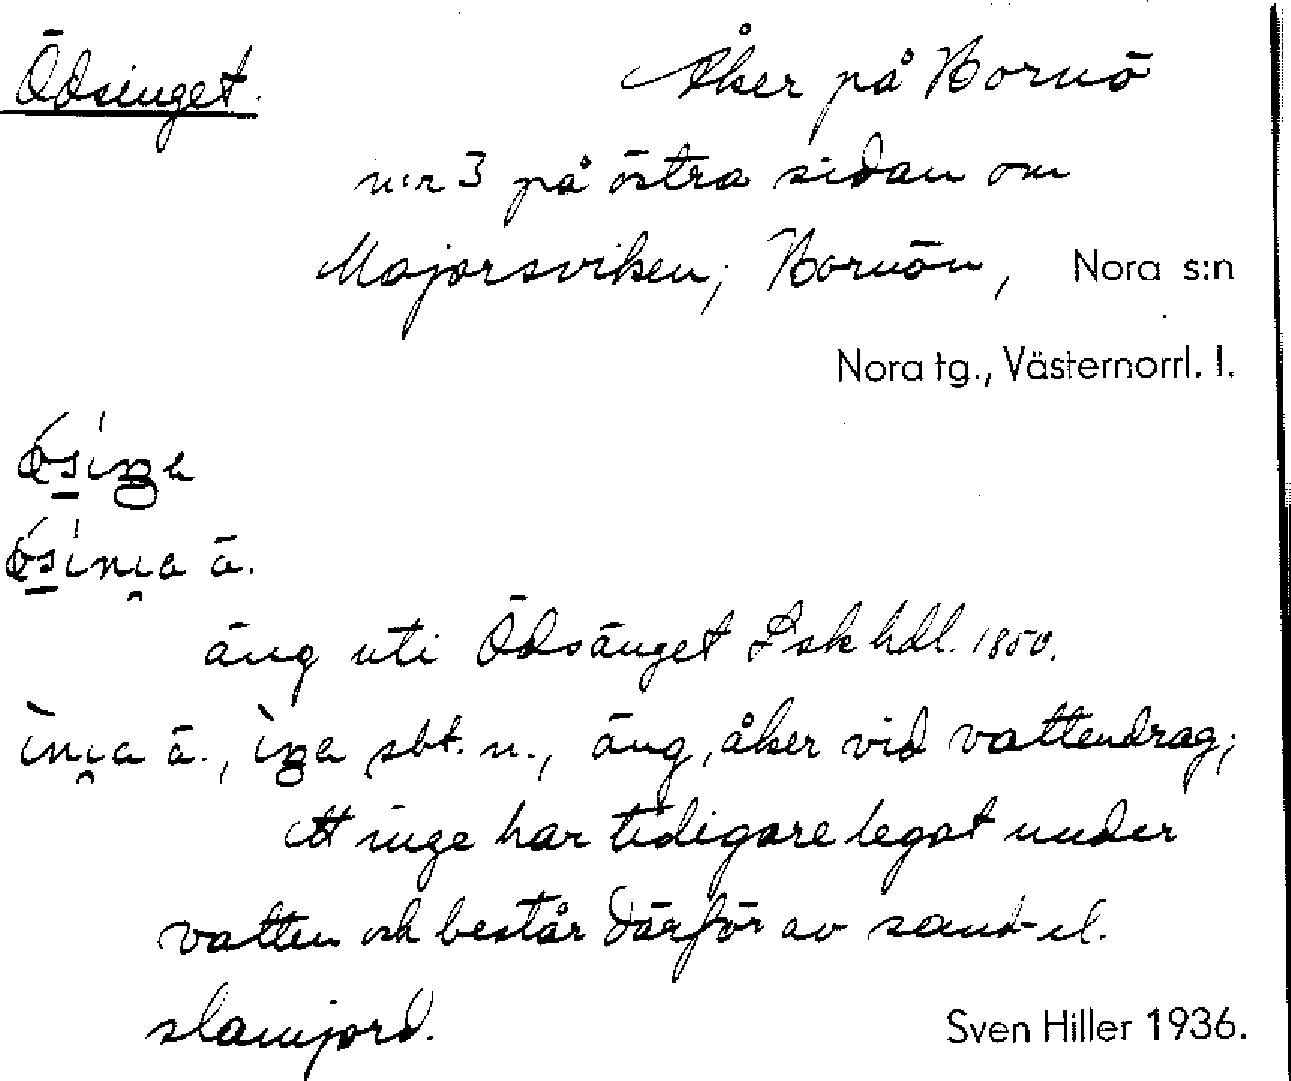 Ödsinget. Åker på Hornö
n:r 3 på östra sidan om
Majorsviken, Hornön, Nora s:n
Nora tg., Västernorrl. l.
ä.
äng uti Ödsänget Lsk hdl. 1850.
ä., sbt. n., äng, åker vid vattendrag;
ett inge har tidigare legat under
vatten och består därför av sand- el.
slamjord. Sven Hiller 1936.